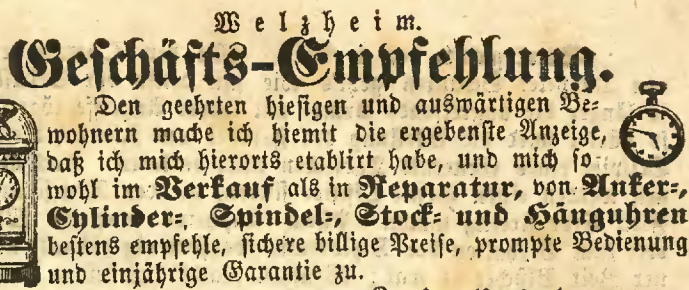 Welzheim.
Geschäfts-Empfehlung.
Den geehrten hiesigen und auswärtigen Be-
wohnern mache ich hiemit die ergebenste Anzeige,
daß ich mich hierorts etablirt habe, und mich so
wohl im Verkauf als in Reparatur, von Anker-,
Cylinder-, Spindel-, Stock- und Hänguhren
bestens empfehle, sichere billige Preise, prompte Bedienung
und einjährige Garantie zu.